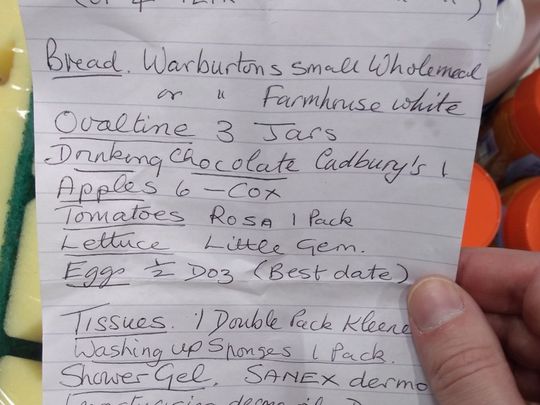 Bread. Warburtons small Wholemeal
or " Farmhouse white
Ovaltine 3 Jars
Drinking Chocolate Cadbury's 1
Apples 6 - Cox
Tomatoes ROSA 1 Pack
Lettuce Little Gem.
Eggs ½ Doz (Best date)
Tissues. 1 Double Pack Kleene
Washing up Sponges 1 Pack.
Shower Gel. SANEX dermo